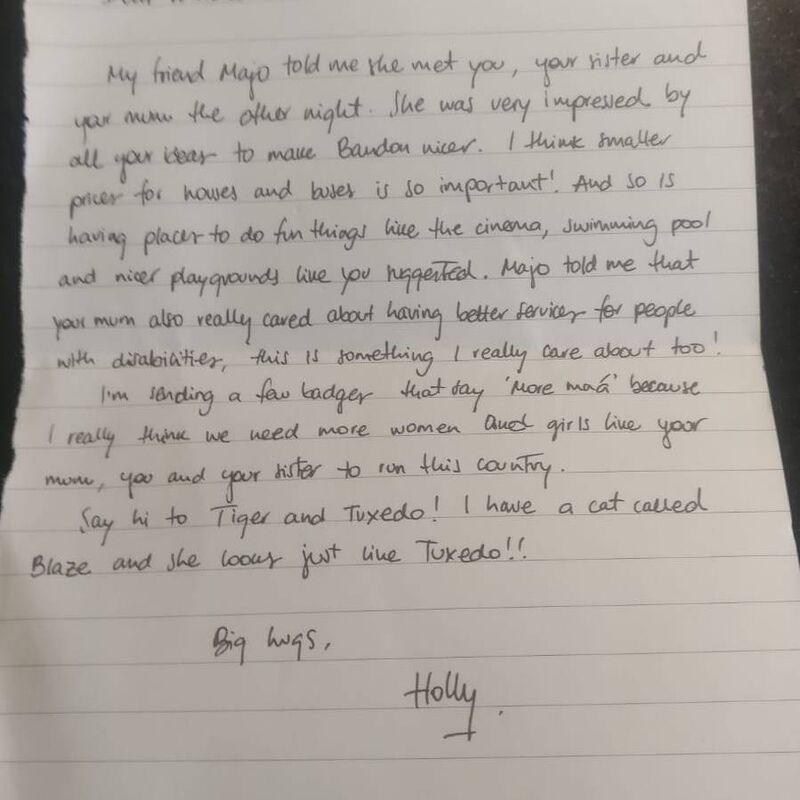 My friend Majo told me she met you, your sister and
your mum the other night. She was very impressed by
all your ideas to make Bandon nicer. I think smaller
prices for houses and buses is so important! And so is
having places to do fun things like the cinema, swimming pool
and nicer playgrounds like you suggested. Majo told me that
your mum also really cared about having better services for people
with disabilities, this is something I really care about too!
I'm sending a few badges that say 'More mná' because
I really think we need more women and girls like your
mum, you and your sister to run this country.
Say hi to Tiger and Tuxedo! I have a cat called
Blaze and she looks just like Tuxedo!!
Big hugs,
Holly